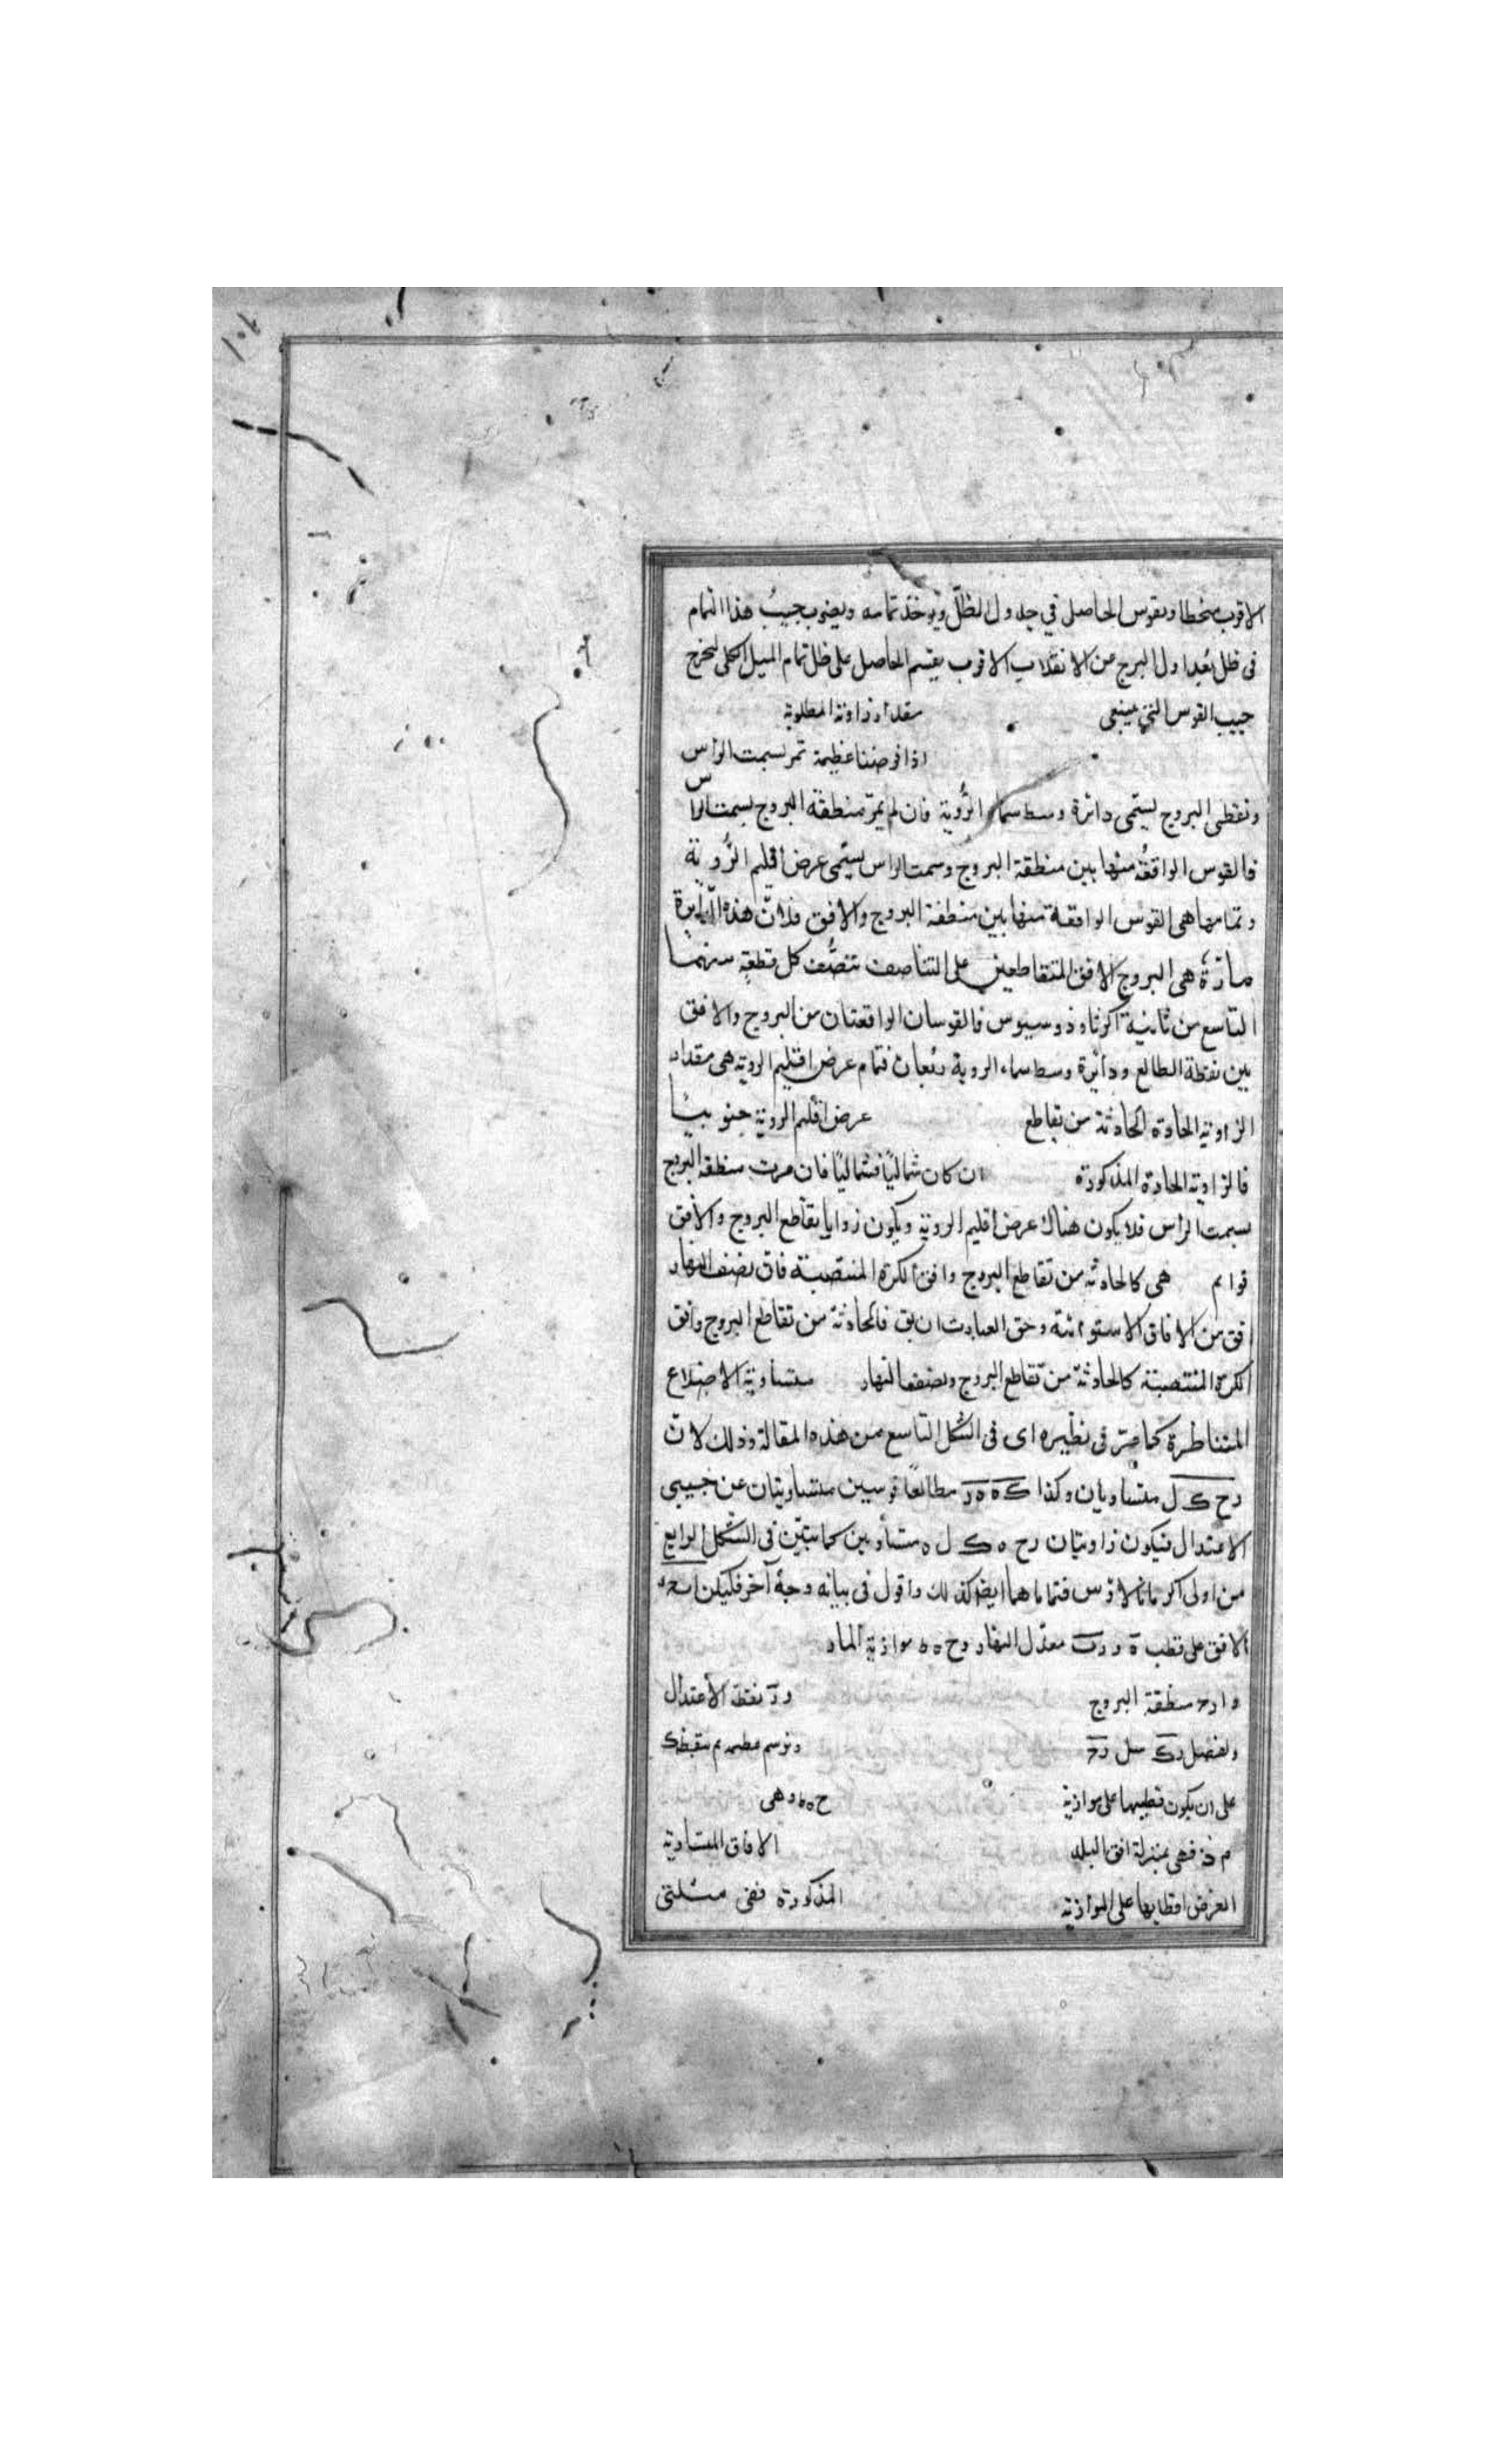 الاقرب منحطا ويقوس الحاصل في جدول الظلّ ويوخذ تمامه ويضرب جيبُ هذا التمام
فى ظل بُعد اول البرج من الانقلاب الاقرب يقسم الحاصل على ظل تمام الميل الكلى ليخرج
جيب القوس التي ينبغى مقدار زاوية المطلوبة
اذا فرضنا عظيمة تمر بسمت الراس
ونقطى البروج يسمّى دائرة وسط سماء الرُّوية فان لم يمرّ منطقة البروج بسمت الراس
فالقوس الواقعةُ منها بين منطقة البروج وسمت الراس يسمّى عرض اقليم الرُّوية
وتمامها هى القوس الواقعة منها بين منطقة البروج والافق فلانّ هذه الدّايرة
مارّةٌ هى البروج الافق المتقاطعين على التناصف تنصُّف كل قطعةٍ منهما
التاسع من ثانية اكر ثاوذوسيوس فالقوسان الواقعتان من البروج والافق
بين نقطة الطالع ودايرة وسط سماء الروية ربُعان فتمام عرض اقليم الروية هى مقدار
الزاوية الحادة الحادثة من تقاطع عرض اقليم الروية جنوبيًا
فالزاوية الحادة المذكورة ان كان شماليًا فشماليًا فان مرت منطقة البروج
بسمت الراس فلا يكون هناك عرض اقليم الروية ويكون زوايا تقاطع البروج والافق
قوايم هى كالحادثة من تقاطع البروج وافق الكرة المنتصبة فان نصف النهار
افق من الافاق الاستوائية وحق العبارت ان يق فالحادثة من تقاطع البروج وافق
الكرة المنتصبة كالحادثة من تقاطع البروج ونصف النهار متساوية الاضلاع
المتناظرة كما مرّ فى نظيره اى فى الشكل التاسع من هذه المقالة وذلك لانّ
رح ك ل متساويان وكذا ك ه ه ر مطالعا قوسين متساويتان عن جنبى
الاعتدال فيكون زاويتان رح ه ك ل ه متساويين كما تبيّن فى الشكل الرابع
من اولى اكر مانالاوس فتماماهما ايضا كذلك واقول فى بيانه وجهٌ آخر فليكن
الافق على قطب ه معدّل النهار وح ه ه موازية المار
منطقة البروج نقطة الاعتدال
ونفصل رك مثل رح ونرسم عظيمة تمر بنقطة ك
على ان يكون قطبيها على موازية ح ه ه وهى
فهى بمنزلة افق البلد الافاق المتساوية
العرض اقطابها على الموازية المذكورة ففى مثلثى